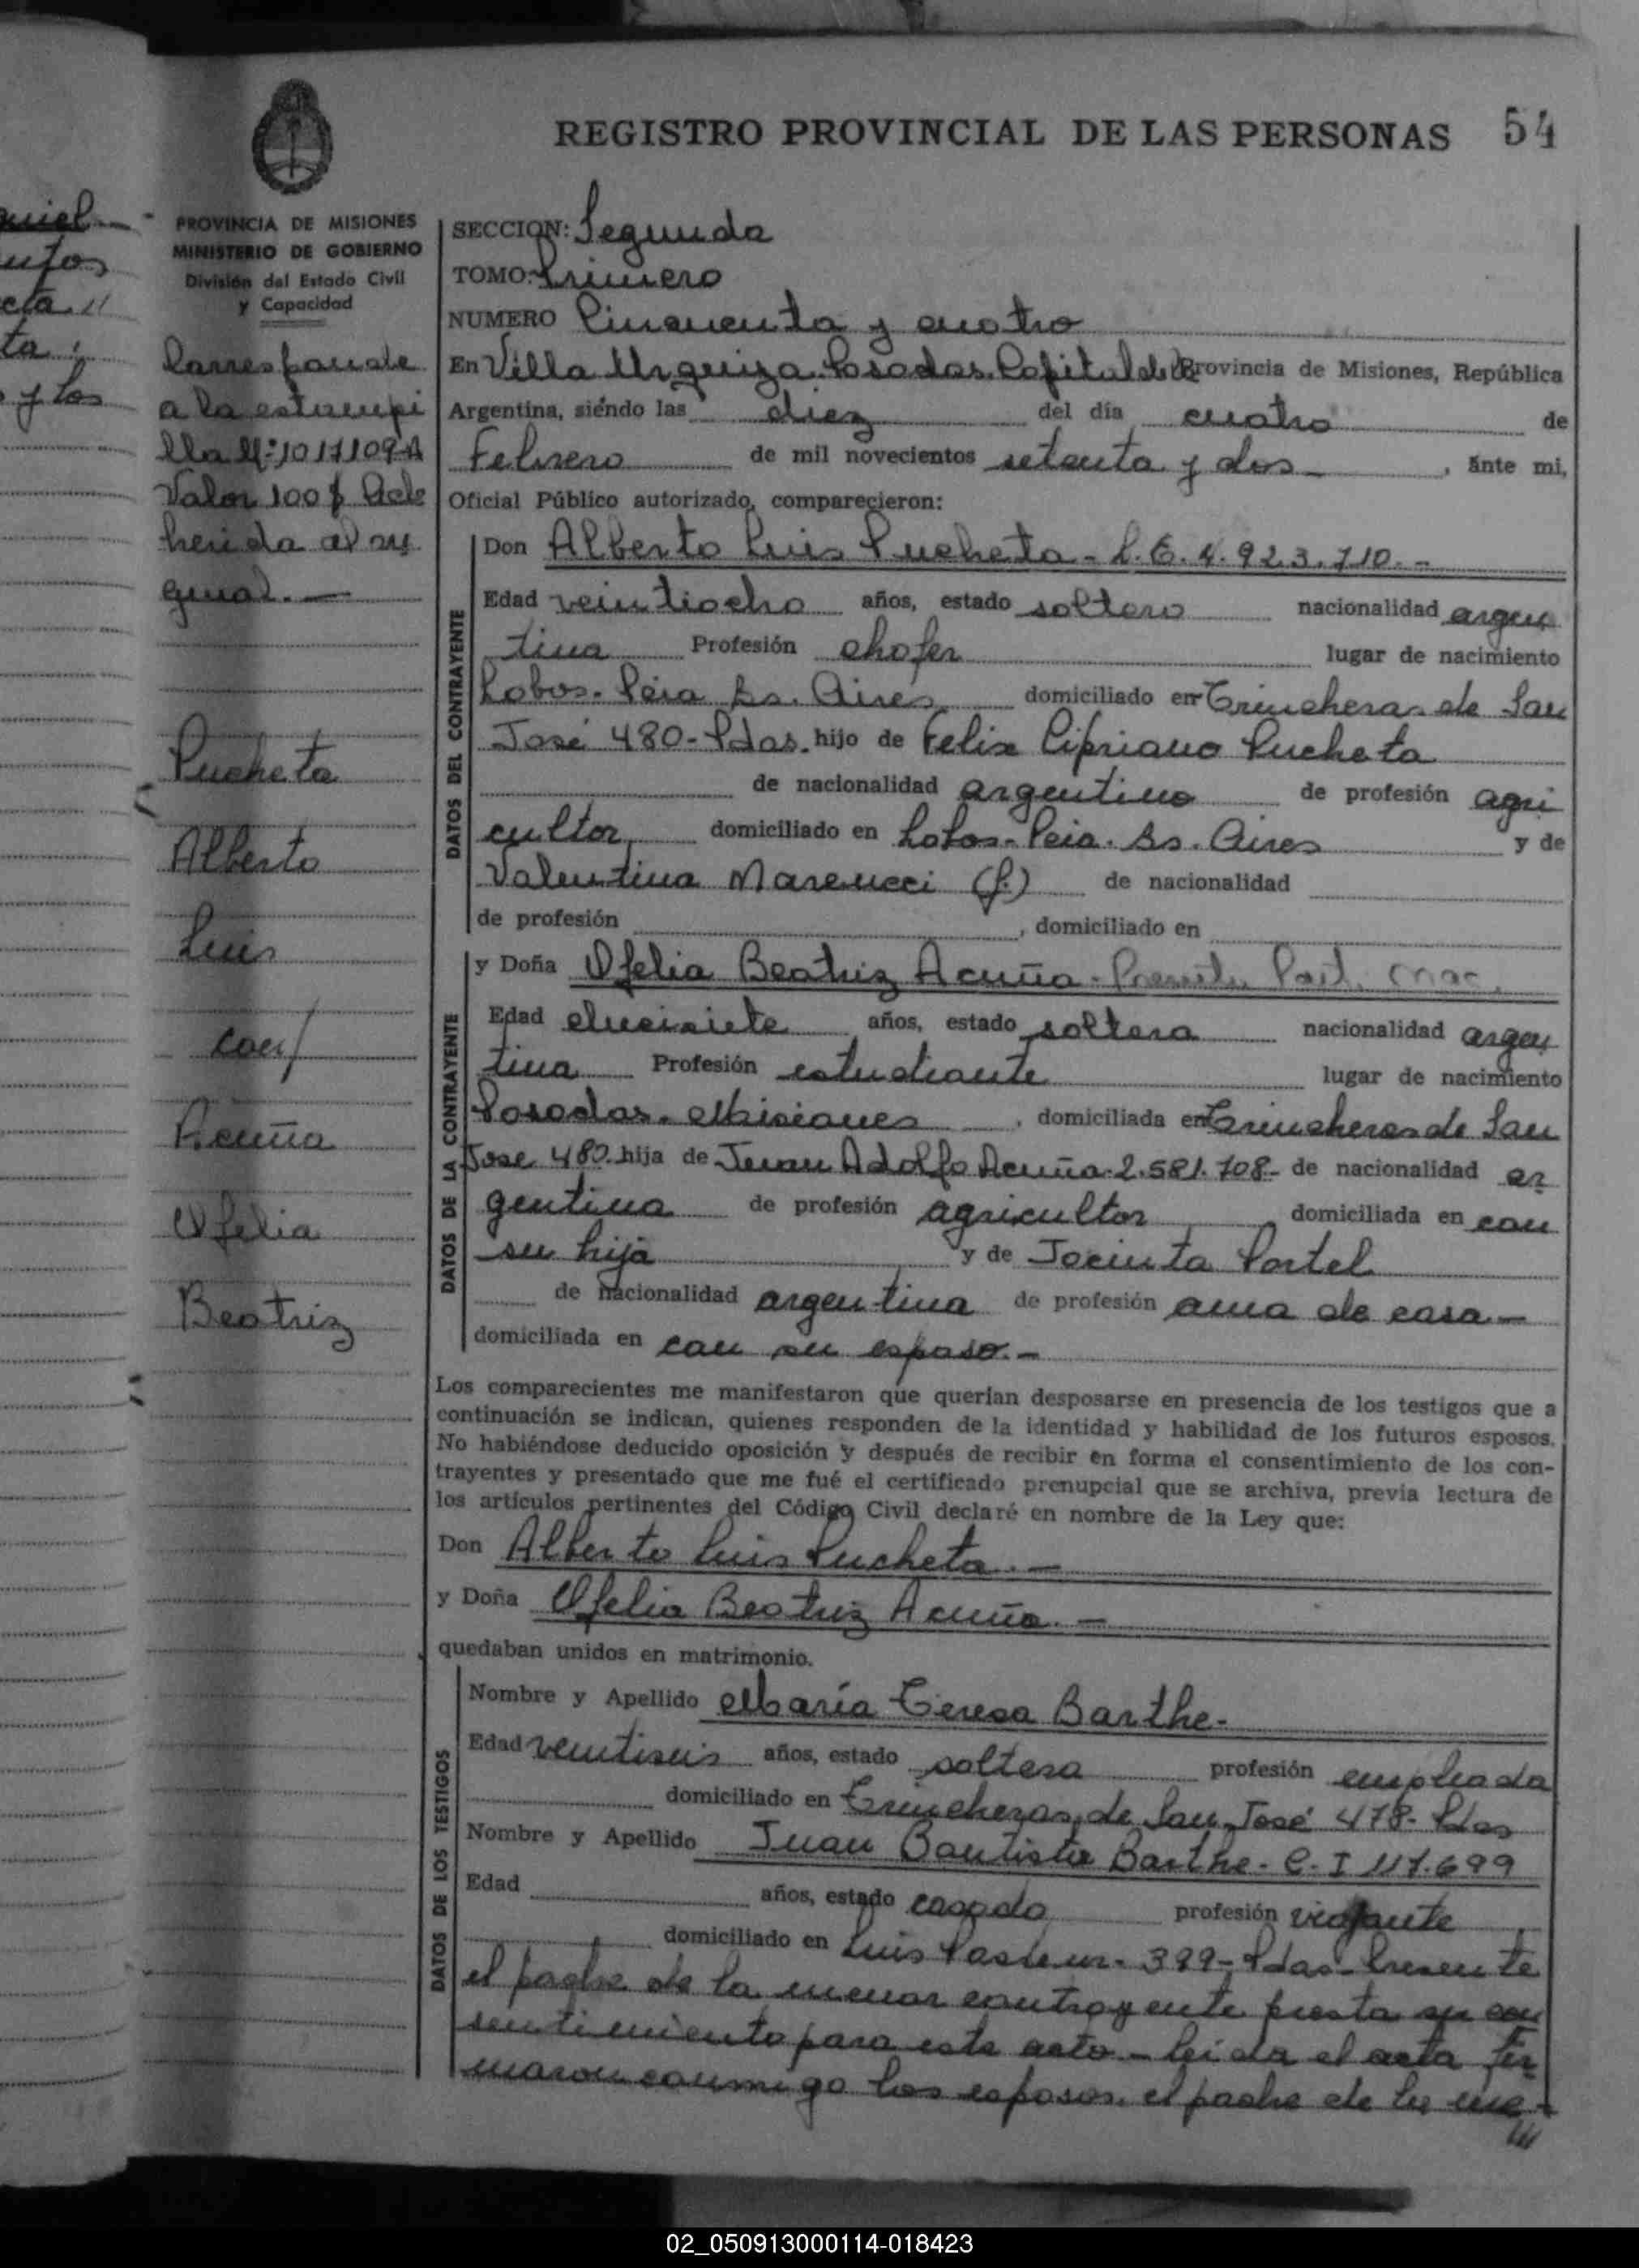 REGISTRO PROVINCIAL DE LAS PERSONAS 54
PROVINCIA DE MISIONES
MINISTERIO DE GOBIERNO
División del Estado Civil
y Capacidad
Corresponde
a la estampi
lla Nº 1017109-A
Valor 100 $ Adh
herida al ori
ginal.—
Pucheta
Alberto
Luis
con/
Acuña
Ofelia
Beatriz
SECCION: Segunda
TOMO: Primero
NUMERO Cincuenta y cuatro
En Villa Urquiza Posadas Capital de la Provincia de Misiones, República
Argentina, siéndo las diez del día cuatro de
Febrero de mil novecientos setenta y dos , ante mi,
Oficial Público autorizado, comparecieron:
DATOS DEL CONTRAYENTE
Don Alberto Luis Pucheta - L.E. 4.923.710.-
Edad veintiocho años, estado soltero nacionalidad argen
tina Profesión chofer lugar de nacimiento
Lobos. Pcia Bs. Aires domiciliado en Trincheras de San
José 480-Pdas. hijo de Felix Cipriano Pucheta
de nacionalidad argentino de profesión agri
cultor domiciliado en Lobos-Pcia. Bs. Aires y de
Valentina Marcucci (f.) de nacionalidad
de profesión , domiciliado en
DATOS DE LA CONTRAYENTE
y Doña Ofelia Beatriz Acuña - Presenta Part. Nac.
Edad diecisiete años, estado soltera nacionalidad argen
tina Profesión estudiante lugar de nacimiento
Posadas. Misiones , domiciliada en Trincheras de San
Jose 480. hija de Juan Adolfo Acuña. 2.581.708- de nacionalidad ar
gentina de profesión agricultor domiciliada en con
su hija y de Jacinta Portel
de nacionalidad argentina de profesión ama de casa.-
domiciliada en con su esposo.-
Los comparecientes me manifestaron que querían desposarse en presencia de los testigos que a
continuación se indican, quienes responden de la identidad y habilidad de los futuros esposos.
No habiéndose deducido oposición y después de recibir en forma el consentimiento de los con-
trayentes y presentado que me fué el certificado prenupcial que se archiva, previa lectura de
los artículos pertinentes del Código Civil declaré en nombre de la Ley que:
Don Alberto Luis Pucheta.—
y Doña Ofelia Beatriz Acuña.—
quedaban unidos en matrimonio.
DATOS DE LOS TESTIGOS
Nombre y Apellido María Teresa Barthe-
Edad ventiseis años, estado soltera profesión empleada
domiciliado en Trincheras de San José 478- Pdas
Nombre y Apellido Juan Bautista Barthe- C.I 117.699
Edad años, estado casado profesión viajante
domiciliado en Luis Pasteur- 399-Pdas- Presente
el padre de la menor contrayente presta su con
sentimiento para este acto - leida el acta fir
maron conmigo los esposos, el padre de la me-
02_050913000114-018423